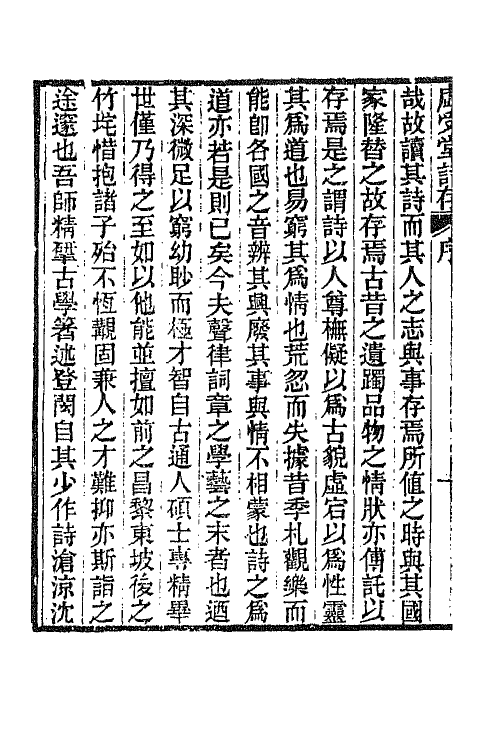 虛受堂詩存　序
哉故讀其詩而其人之志與事存焉所值之時與其國
家隆替之故存焉古昔之遺躅品物之情狀亦傳託以
存焉是之謂詩以人尊橅儗以爲古貌虛宕以爲性靈
其爲道也易窮其爲情也荒忽而失據昔季札觀樂而
能卽各國之音辨其興廢其事與情不相蒙也詩之爲
道亦若是則已矣今夫聲律詞章之學藝之末者也迺
其深微足以窮幼眇而極才智自古通人碩士專精畢
世僅乃得之至如以他能並擅如前之昌黎東坡後之
竹垞惜抱諸子殆不恆觀固兼人之才難抑亦斯詣之
途邃也吾師精揅古學箸述登閎自其少作詩滄涼沈